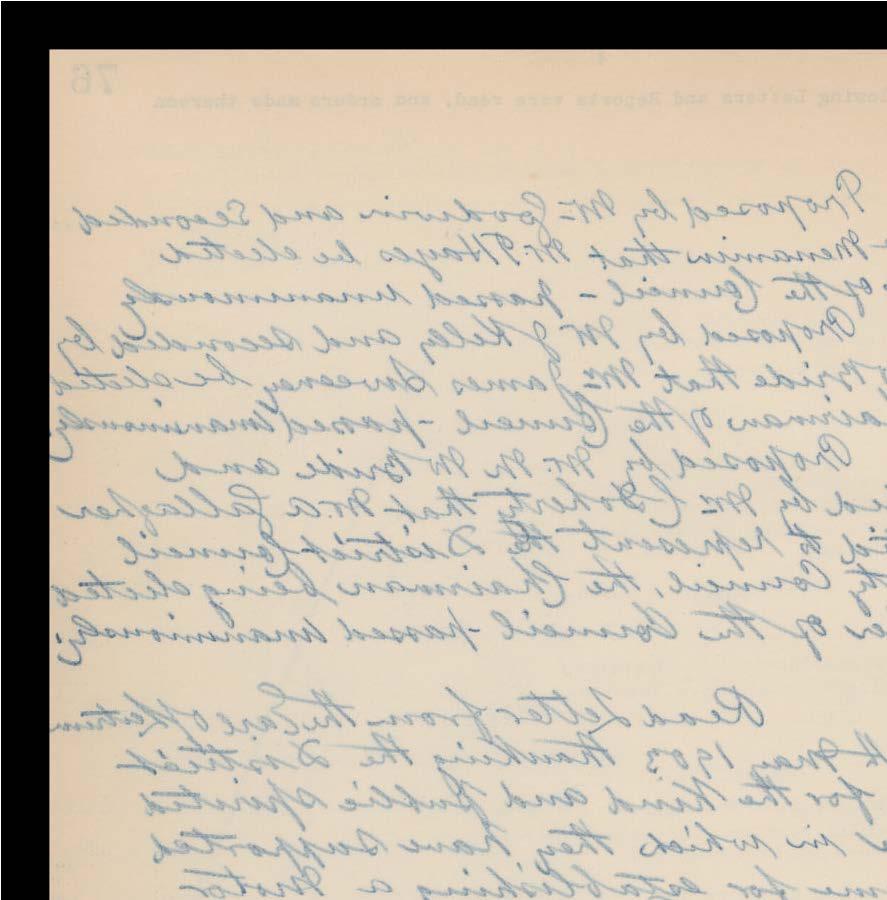 76
lowing Letters and Reports were read, and orders made thereon
Proposed by Mr Goodwin and Seconded
Menamin that Mr T Hayes be elected
of the Council - passed unanimously
Proposed by Mr J Kelly and seconded by
Bride that Mr James Sweeney be elected
airman of the Council - passed unanimously
Proposed by Mr N McBride and
by Mr C Doherty that Mr A. Gallagher
to represent the District Council
Council, the Chairman being elected
of the Council - passed unanimously.
Read letter from the
May 1903 thanking the District
for the kind and public spirited
in which they have supported
me for establishing a Motor